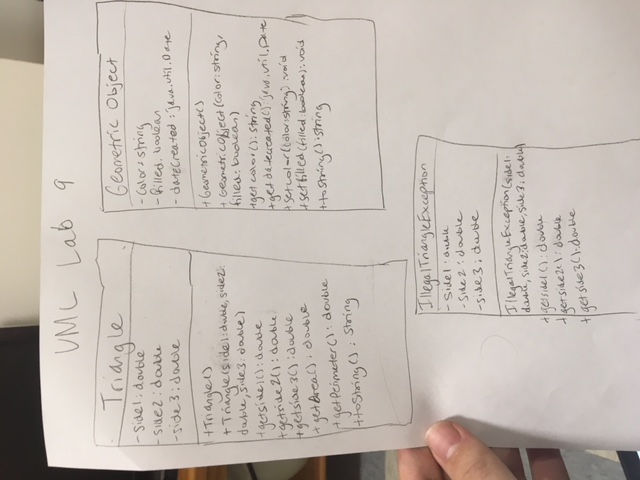 UML Lab 9
Triangle
- side1: double
- side2: double
- side3: double
+Triangle()
+ Triangle(side1: double, side2:
double, side3: double)
+getside1(): double
+getside2(): double
+getside3(): double
+ getArea(): double
+getPerimeter(): double
+toString(): String
Geometric Object
- color: string
- filled: boolean
- dateCreated: java.util.Date
+GeometricObject()
+ GeometricObject(color: string,
filled: boolean)
+getcolor(): String
+getdatecreated(): java.util.Date
+setcolor(color: string): void
+setfilled(filled: boolean): void
+toString(): string
IllegalTriangleException
- Side1: double
- Side2: double
- side3: double
IllegalTriangleException(side1:
double, side2: double, side3: double)
+ getside1(): double
+ getside2(): double
+ getside3(): double